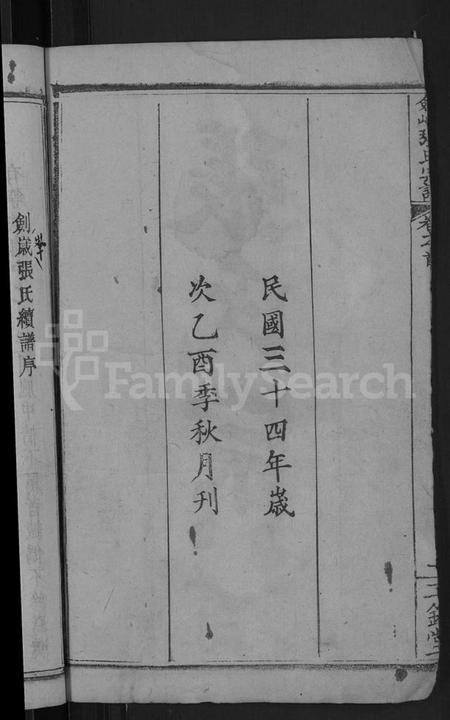 民國三十四年歲
次乙酉季秋月刊
張氏宗譜
卷之首
三鉞堂
創歲張氏續譜序
FamilySearch